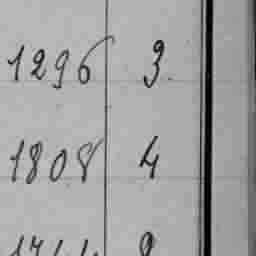 1296 3.
1808 4